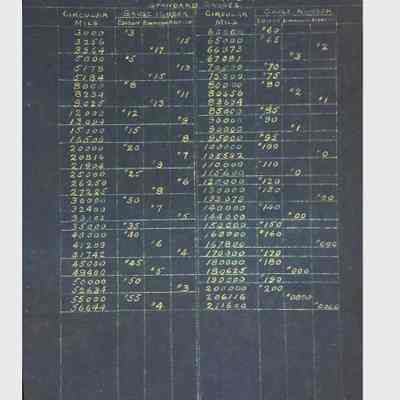 STANDARD GAUGES
CIRCULAR GAUGE NUMBER CIRCULAR GAUGE NUMBER
MILS EDISON MILS EDISON
3000 #3 60000 #60
3256 #15 65000 #65
3364 #17 66373 #2
5000 #5 67081 #3
5178 #13 70500 #70
5184 #15 75000 #75
8000 #8 80000 #80
8234 #11 80656 #2
9025 #13 83694 #1
12000 #12 85000 #85
13094 #9 90000 #90
15100 #15 90000 #1
16500 #8 95000 #95
20000 #20 100000 #100
20816 #7 105592 #0
21904 #9 110000 #110
25000 #25 115600 #0
26250 #6 120000 #120
27225 #8 130000 #130
30000 #30 133079 #00
32400 #7 140000 #140
33102 #5 144400 #00
35000 #35 150000 #150
40000 #40 160000 #160
41209 #6 167800 #000
41742 #4 170000 #170
45000 #45 180000 #180
48400 #5 180625 #000
50000 #50 190000 #190
52634 #3 200000 #200
55000 #55 206116 #0000
56644 #4 211600 #0000